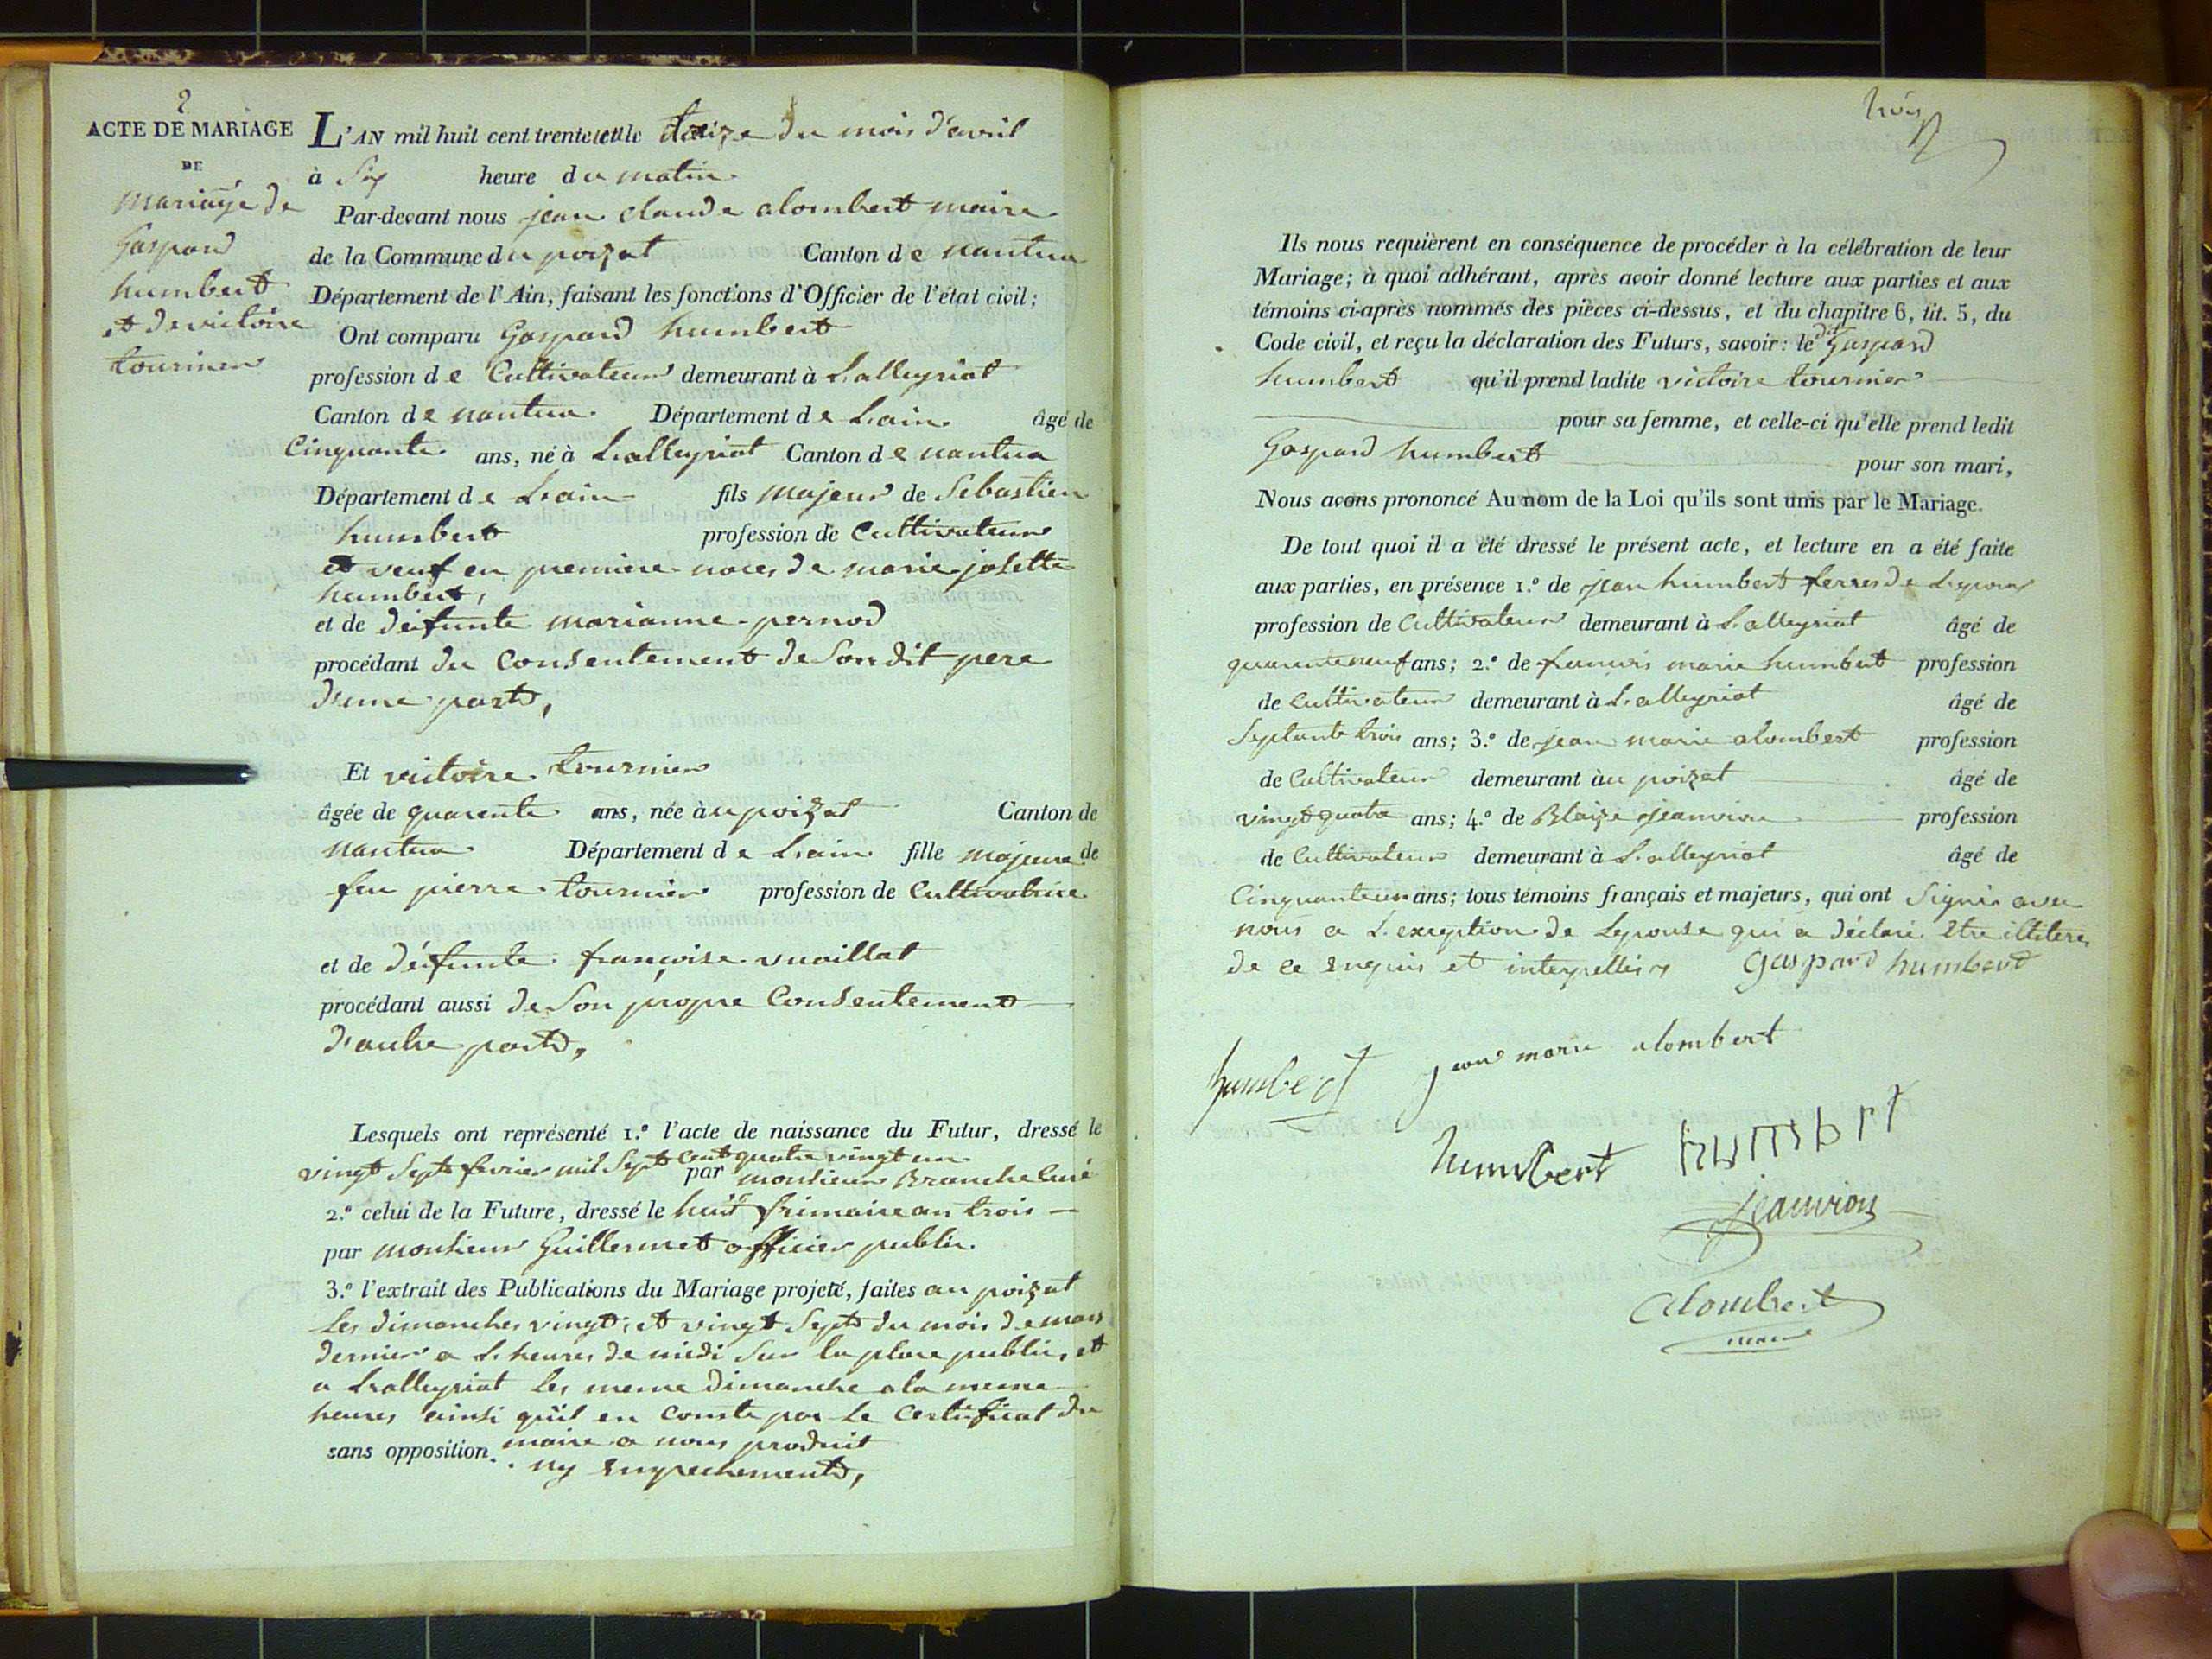 2
ACTE DE MARIAGE
DE
mariage de
Gaspard
humbert
et de victoire
tournier
L'AN mil huit cent trente et un le treize du mois d'avril
à Six heure du matin
Par-devant nous jean claude alombert maire
de la Commune du poizat Canton de nantua
Département de l'Ain, faisant les fonctions d'Officier de l'état civil;
Ont comparu Gaspard humbert
profession de Cultivateur demeurant à Lalleyriat
Canton de nantua Département de Lain âgé de
Cinquante ans, né à Lalleyriat Canton de nantua
Département de Lain fils majeur de Sebastien
humbert profession de Cultivateur
et veuf en premiere noces de marie josette
humbert,
et de defunte marianne pernod
procédant du Consentement de Son dit pere
d'une part,
Et victoire tournier
âgée de quarente ans, née àu poizat Canton de
nantua Département de Lain fille majeure de
feu pierre tournier profession de Cultivatrice
et de défunte françoise vuaillat
procédant aussi de Son propre Consentement
d'autre part,
Lesquels ont représenté 1.º l'acte de naissance du Futur, dressé le
vingt Sept fevrier mil Sept Cent quatre vingt un
par monsieur Branche Curé
2.º celui de la Future, dressé le huit frimaire an trois —
par monsieur Guillermet officier public
3.º l'extrait des Publications du Mariage projeté, faites au poizat
Les dimanches vingt, et vingt Sept du mois de mars
dernier a L. heures de midi Sur la place public, et
a Lalleyriat Les meme dimanche a la meme
heures ainsi qu'il en Conste par Le Certificat du
maire a nous produit
sans opposition. ny Empechements,
trois
Ils nous requièrent en conséquence de procéder à la célébration de leur
Mariage; à quoi adhérant, après avoir donné lecture aux parties et aux
témoins ci-après nommés des pièces ci-dessus, et du chapitre 6, tit. 5, du
Code civil, et reçu la déclaration des Futurs, savoir: le dit Gaspard
humbert qu'il prend ladite victoire tournier
pour sa femme, et celle-ci qu'elle prend ledit
Gaspard humbert pour son mari,
Nous avons prononcé Au nom de la Loi qu'ils sont unis par le Mariage.
De tout quoi il a été dressé le présent acte, et lecture en a été faite
aux parties, en présence 1.º de jean humbert ferres de Lepoux
profession de Cultivateur demeurant à Lalleyriat âgé de
quarente neuf ans; 2.º de francois marie humbert profession
de Cultivateur demeurant à Lalleyriat âgé de
Septante trois ans; 3.º de jean marie alombert profession
de Cultivateur demeurant àu poizat âgé de
vingt quatre ans; 4.º de Blaize jeanvion profession
de Cultivateur demeurant à Lalleyriat âgé de
Cinquante un ans; tous témoins français et majeurs, qui ont Signés avec
nous a L. exception de Lepouse qui a déclaré Etre illiteres
de ce enquis et interpellés Gaspard humbert
humbert jean marie alombert
humbert humbert
jeanvion
Alombert
maire